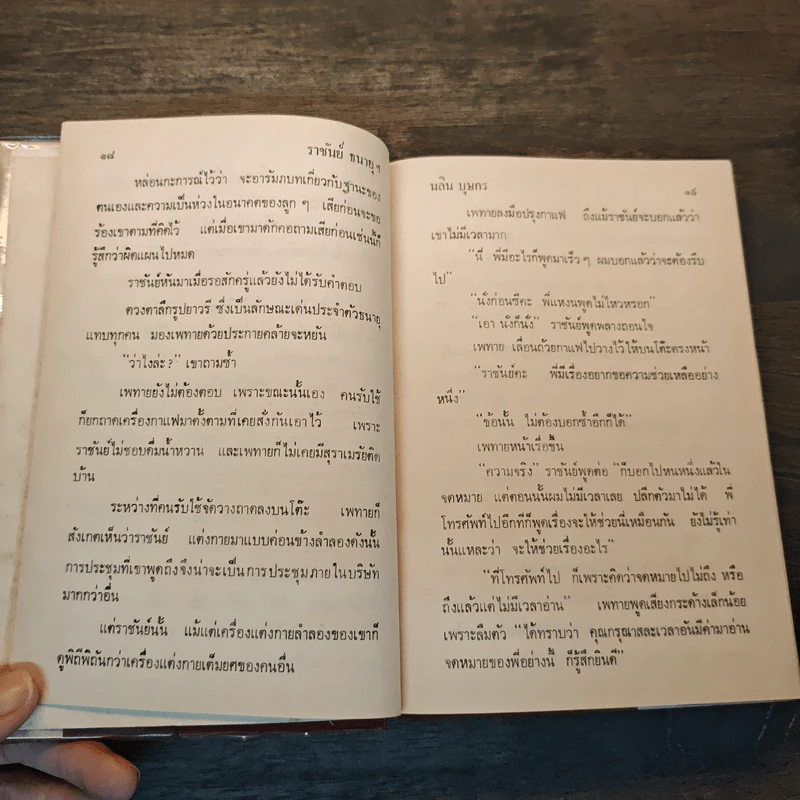 ๑๘
ราชันย์ ธนายุฯ
หล่อนกะการณ์ไว้ว่า จะอารัมภบทเกี่ยวกับฐานะของ
ตนเองและความเป็นห่วงในอนาคตของลูก ๆ เสียก่อนจะขอ
ร้องเขาตามที่คิดไว้ แต่เมื่อเขามาดักคอถามเสียก่อนเช่นนี้ก็
รู้สึกว่าผิดแผนไปหมด
ราชันย์หันมาเมื่อรอสักครู่แล้วยังไม่ได้รับคำตอบ
ดวงตาลึกรูปยาวรี ซึ่งเป็นลักษณะเด่นประจำตัวธนายุ
แทบทุกคน มองเพทายด้วยประกายคล้ายจะหยัน
“ว่าไงล่ะ ?” เขาถามซ้ำ
เพทายยังไม่ต้องตอบ เพราะขณะนั้นเอง คนรับใช้
ก็ยกถาดเครื่องกาแฟมาตั้งตามที่เคยสั่งกันเอาไว้ เพราะ
ราชันย์ไม่ชอบดื่มน้ำหวาน และเพทายก็ไม่เคยมีสุราเมรัยติด
บ้าน
ระหว่างที่คนรับใช้จัดวางถาดลงบนโต๊ะ เพทายก็
สังเกตเห็นว่าราชันย์ แต่งกายมาแบบค่อนข้างลำลองดังนั้น
การประชุมที่เขาพูดถึงจึงน่าจะเป็นการประชุมภายในบริษัท
มากกว่าอื่น
แต่ราชันย์นั้น แม้แต่เครื่องแต่งกายลำลองของเขาก็
ดูพิถีพิถันกว่าเครื่องแต่งกายเต็มยศของคนอื่น
นลิน บุษกร
๑๙
เพทายลงมือปรุงกาแฟ ถึงแม้ราชันย์จะบอกแล้วว่า
เขาไม่มีเวลามาก
“นี่ พี่มีอะไรก็พูดมาเร็ว ๆ ผมบอกแล้วว่าจะต้องรีบ
ไป”
“นั่งก่อนซีคะ พี่แหงนพูดไม่ไหวหรอก”
“เอา นั่งก็นั่ง” ราชันย์พูดพลางถอนใจ
เพทาย เลื่อนถ้วยกาแฟไปวางไว้ให้บนโต๊ะตรงหน้า
“ราชันย์คะ พี่มีเรื่องอยากขอความช่วยเหลืออย่าง
หนึ่ง”
“ข้อนั้น ไม่ต้องบอกซ้ำอีกก็ได้”
เพทายหน้าเรื่อขึ้น
“ความจริง” ราชันย์พูดต่อ “ก็บอกไปหนหนึ่งแล้วใน
จดหมาย แต่ตอนนั้นผมไม่มีเวลาเลย ปลีกตัวมาไม่ได้ พี่
โทรศัพท์ไปอีกทีก็พูดเรื่องจะให้ช่วยนี่เหมือนกัน ยังไม่รู้เท่า
นั้นแหละว่า จะให้ช่วยเรื่องอะไร”
“ที่โทรศัพท์ไป ก็เพราะคิดว่าจดหมายไปไม่ถึง หรือ
ถึงแล้วแต่ไม่มีเวลาอ่าน” เพทายพูดเสียงกระด้างเล็กน้อย
เพราะลืมตัว “ได้ทราบว่า คุณกรุณาสละเวลาอันมีค่ามาอ่าน
จดหมายของพี่อย่างนี้ ก็รู้สึกยินดี”